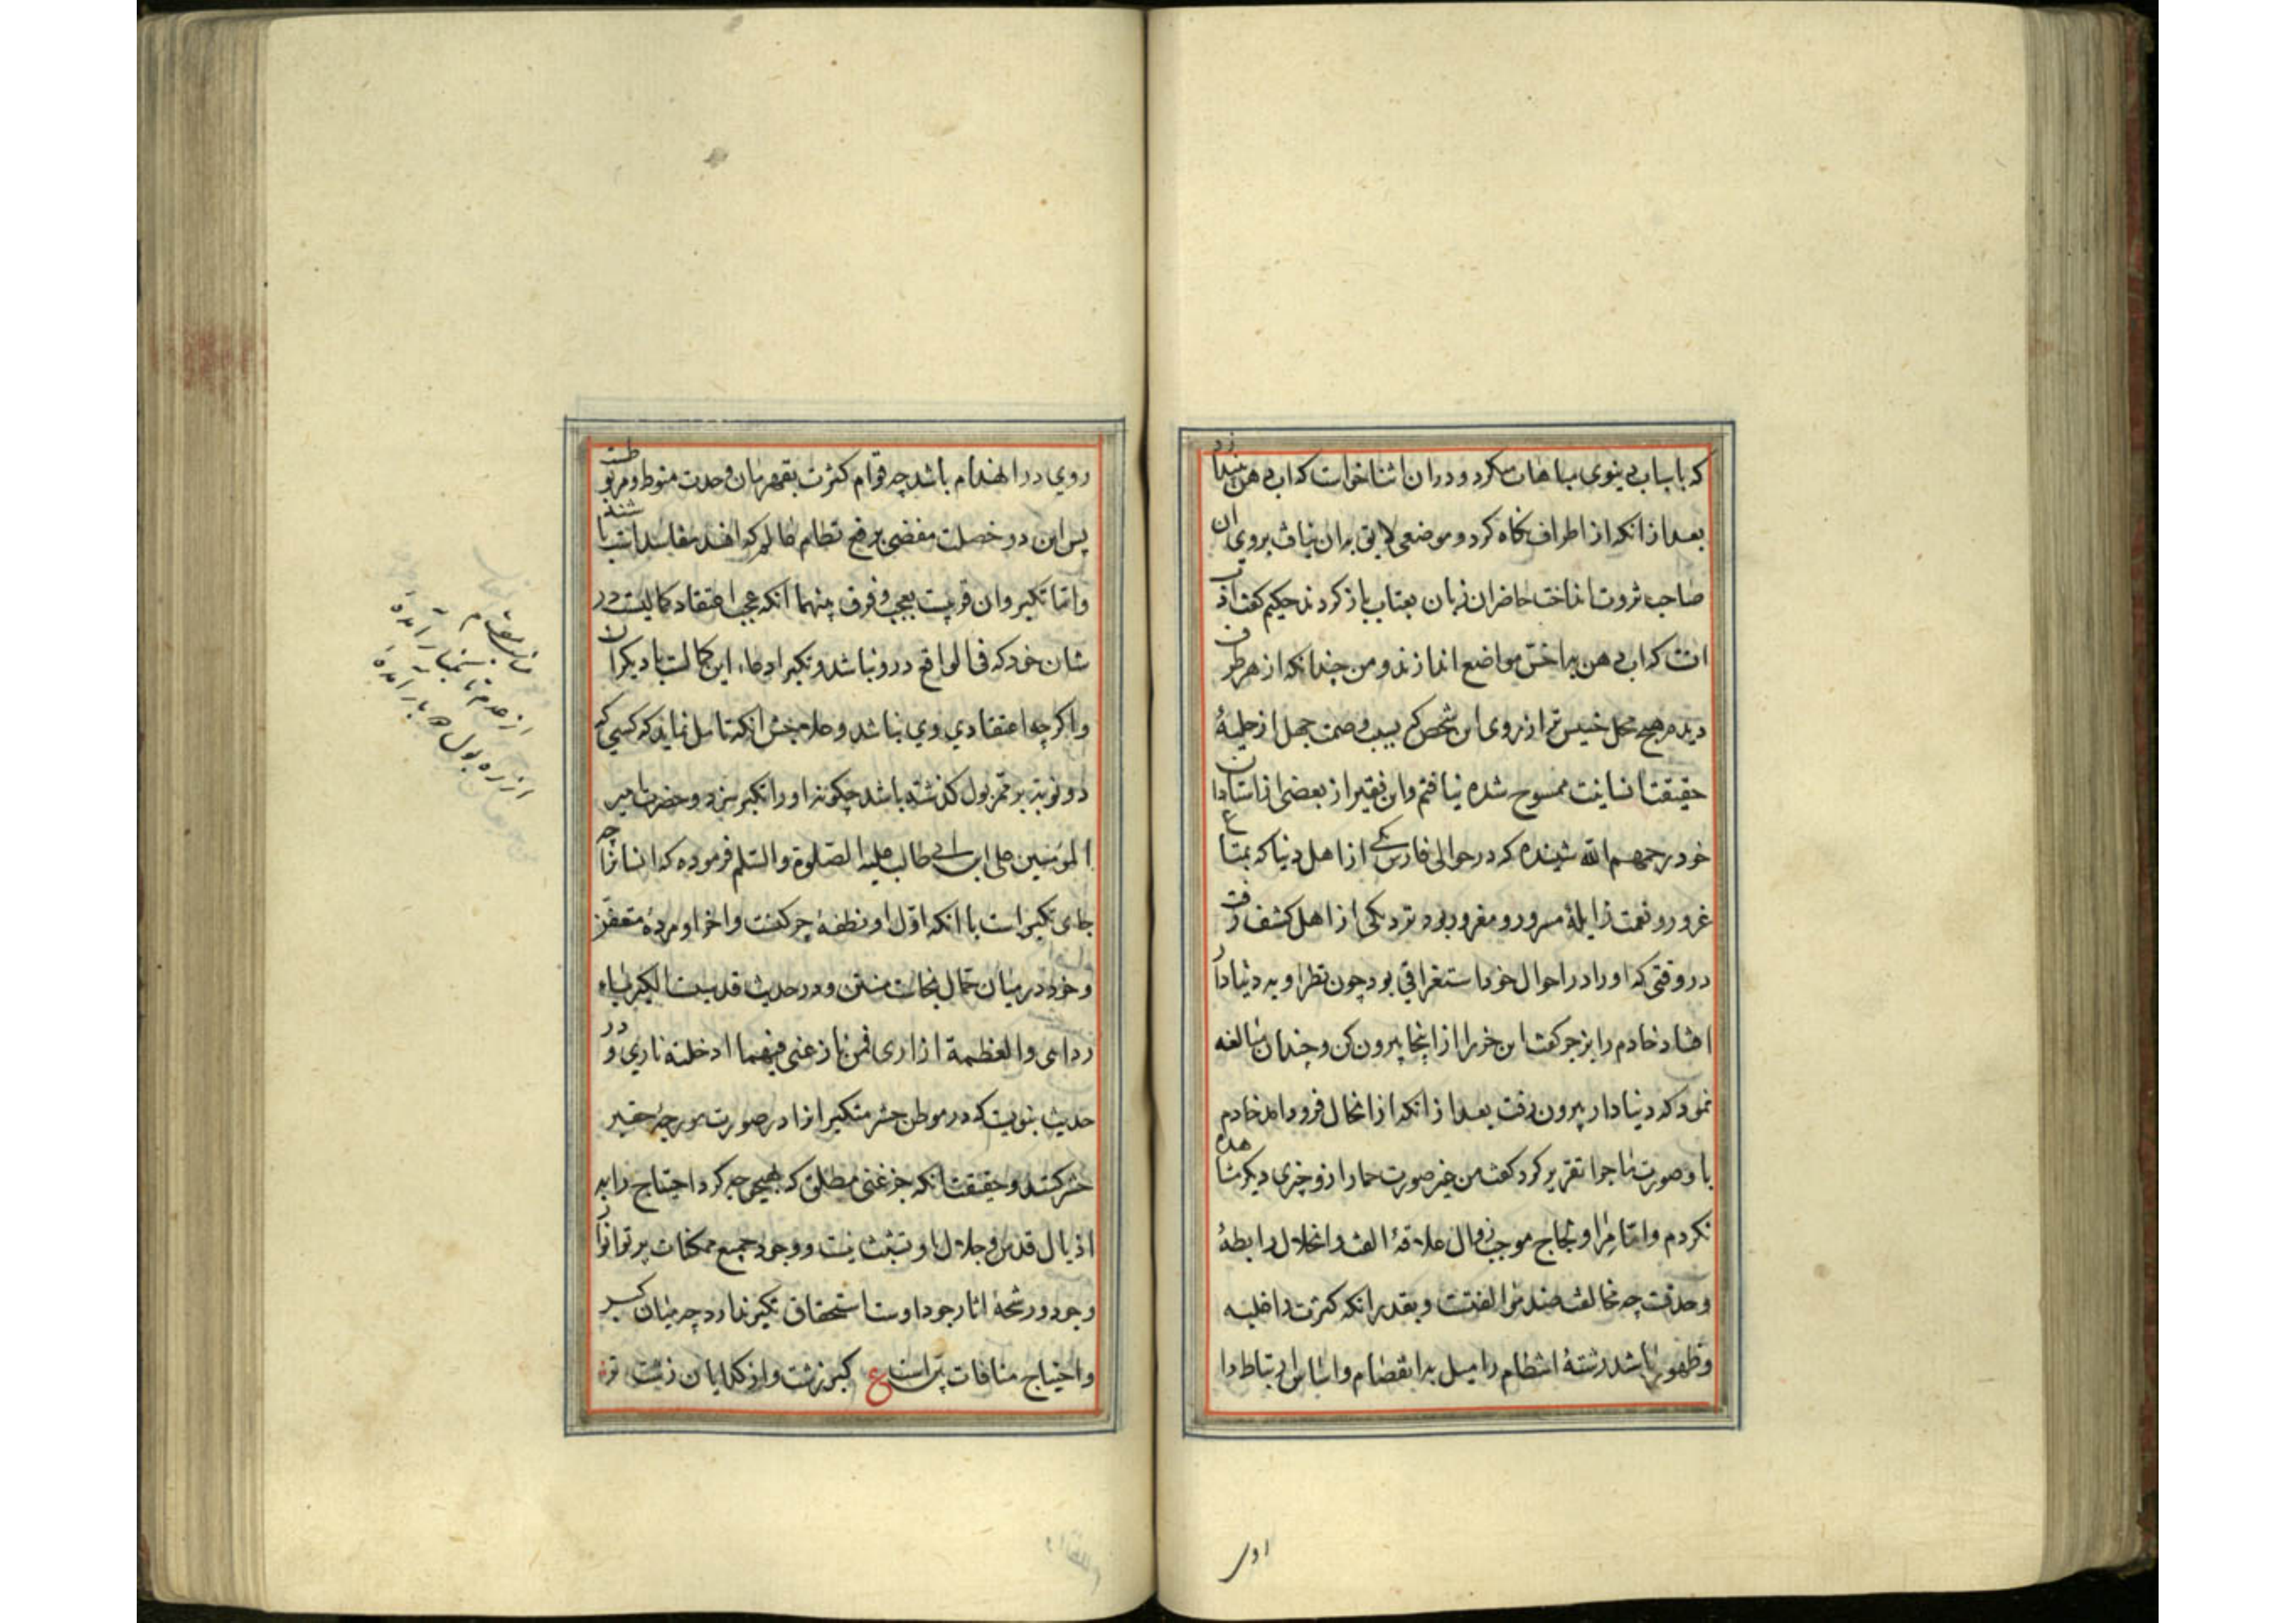 که باسباب دنیوی مباهات میکرد و در ان اثنا خواست که اب دهن بیندازد
بعد از انکه از اطراف نگاه کرد و موضعی لایق بدان نیافت بروی ان
صاحب ثروت انداخت حاضران زبان بعتاب باز کردند حکیم کفت
انست که اب دهن باخس مواضع اندازند و من چندانکه از هر طرف
دیدم هیچ محل خسیس تر از روی این شخص که بسبب وصمت جهل از حلیهٔ
حقیقت انسانیت ممسوح شده نیافتم و این فقیر از بعضی استادان
خود رحمهم الله شنیده که در حوالی فارس یکی از اهل دنیا که بمتاع
غرور و نعمت زایلهٔ مسرور و مغرور بود نزد یکی از اهل کشف رفت
در وقتی که او را در احوال خود استغراقی بود چون نظر او به دنیادار
افتاد خادم را بزجر کفت این خر را از اینجا بیرون کن و چندان مبالغه
نمود که دنیادار بیرون رفت بعد از انکه از انحال فرود امد خادم
با او صورت ماجرا تقریر کرد کفت من غیر صورت حمار ازو چیزی دیکر مشاهده
نکردم و اما مرا و لجاج موجب زوال علاقهٔ الفت و انحلال رابطهٔ
وحدتست چه مخالفت ضد موالفتست و بقدر انکه کثرت را غلبه
و ظهور باشد رشتهٔ انتظام را میل به انفصام و اساس ارتباط را
اول
روی در انهدام باشد چه قوام کثرت بقهرمان وحدت منوط و مربوطست
پس این دو خصلت مفضی برفع نظام عالم که افسد مفاسد است باشند
و اما تکبر و ان قریبست بعجب و فرق بینهما انکه عجب اعتقاد کمالیست در
شان خود که فی الواقع درو نباشد و تکبر ادعاء این کمالست با دیکران
و اکرچه اعتقادی وی نباشد و علاجش انکه تامل نماید که کسی که
دو نوبت بر ممر بول کذشته باشد چکونه او را تکبر سزد و حضرت امیر
المومنین علی ابن ابی طالب علیه الصلوة والسلم فرموده که انسانرا چه
جای تکبر است با انکه اول او نطفهٔ چرکنست و اخر او مردهٔ متعفن
و خود در میان حمال نجاسات منتن و در حدیث قدسیست الکبریاء
ردائی والعظمة ازاری فمن نازعنی فیهما ادخلته ناری و در
حدیث نبویست که در موطن حشر متکبرانرا در صورت مورچهٔ حقیر
حشر کنند و حقیقت انکه جز غنی مطلق که بهیچ وجه کرد احتیاج را به
اذیال قدس و جلال او تشبث نیست و وجود جمیع ممکنات پرتو انوار
وجود و رشحهٔ اثار جود اوست استحقاق تکبر ندارد چه میان کبر
و احتیاج منافات پیداست ع کبر زشت و از کدایان زشت تر
از عدم تا
از ره بول